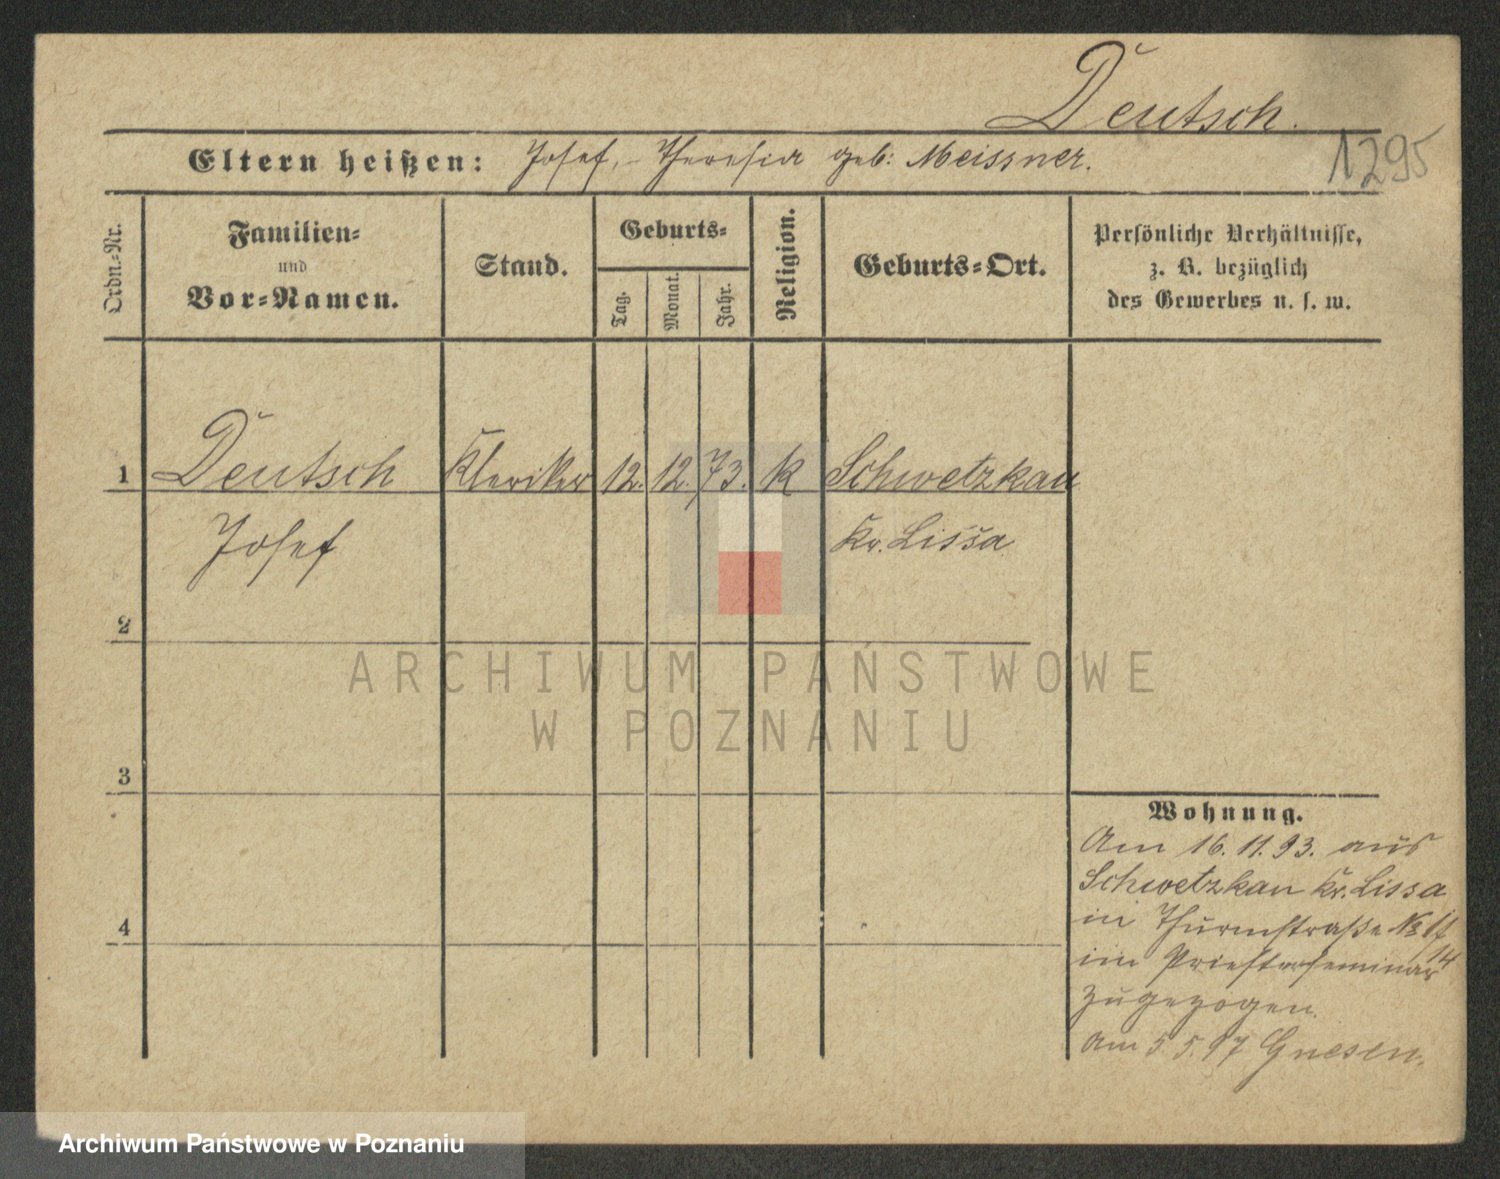 Deutsch.
Eltern heißen: Josef, - Theresia geb: Meissner.
1295
Ordn.-Nr.
Familien-
und
Vor-Namen.
Stand.
Geburts-
Tag.
Monat.
Jahr.
Religion.
Geburts-Ort.
Persönliche Verhältnisse,
z. B. bezüglich
des Gewerbes u. s. w.
1 Deutsch Kleriker 12. 12. 73. K Schwetzkau
Josef Kr. Lissa
2
3
4
Wohnung.
Am 16. 11. 93. aus
Schwetzkau Kr. Lissa
in Thurmstraße No
im Priesterseminar
zugezogen.
Am 5. 5. 97 Gnesen.
ARCHIWUM PAŃSTWOWE
W POZNANIU
Archiwum Państwowe w Poznaniu